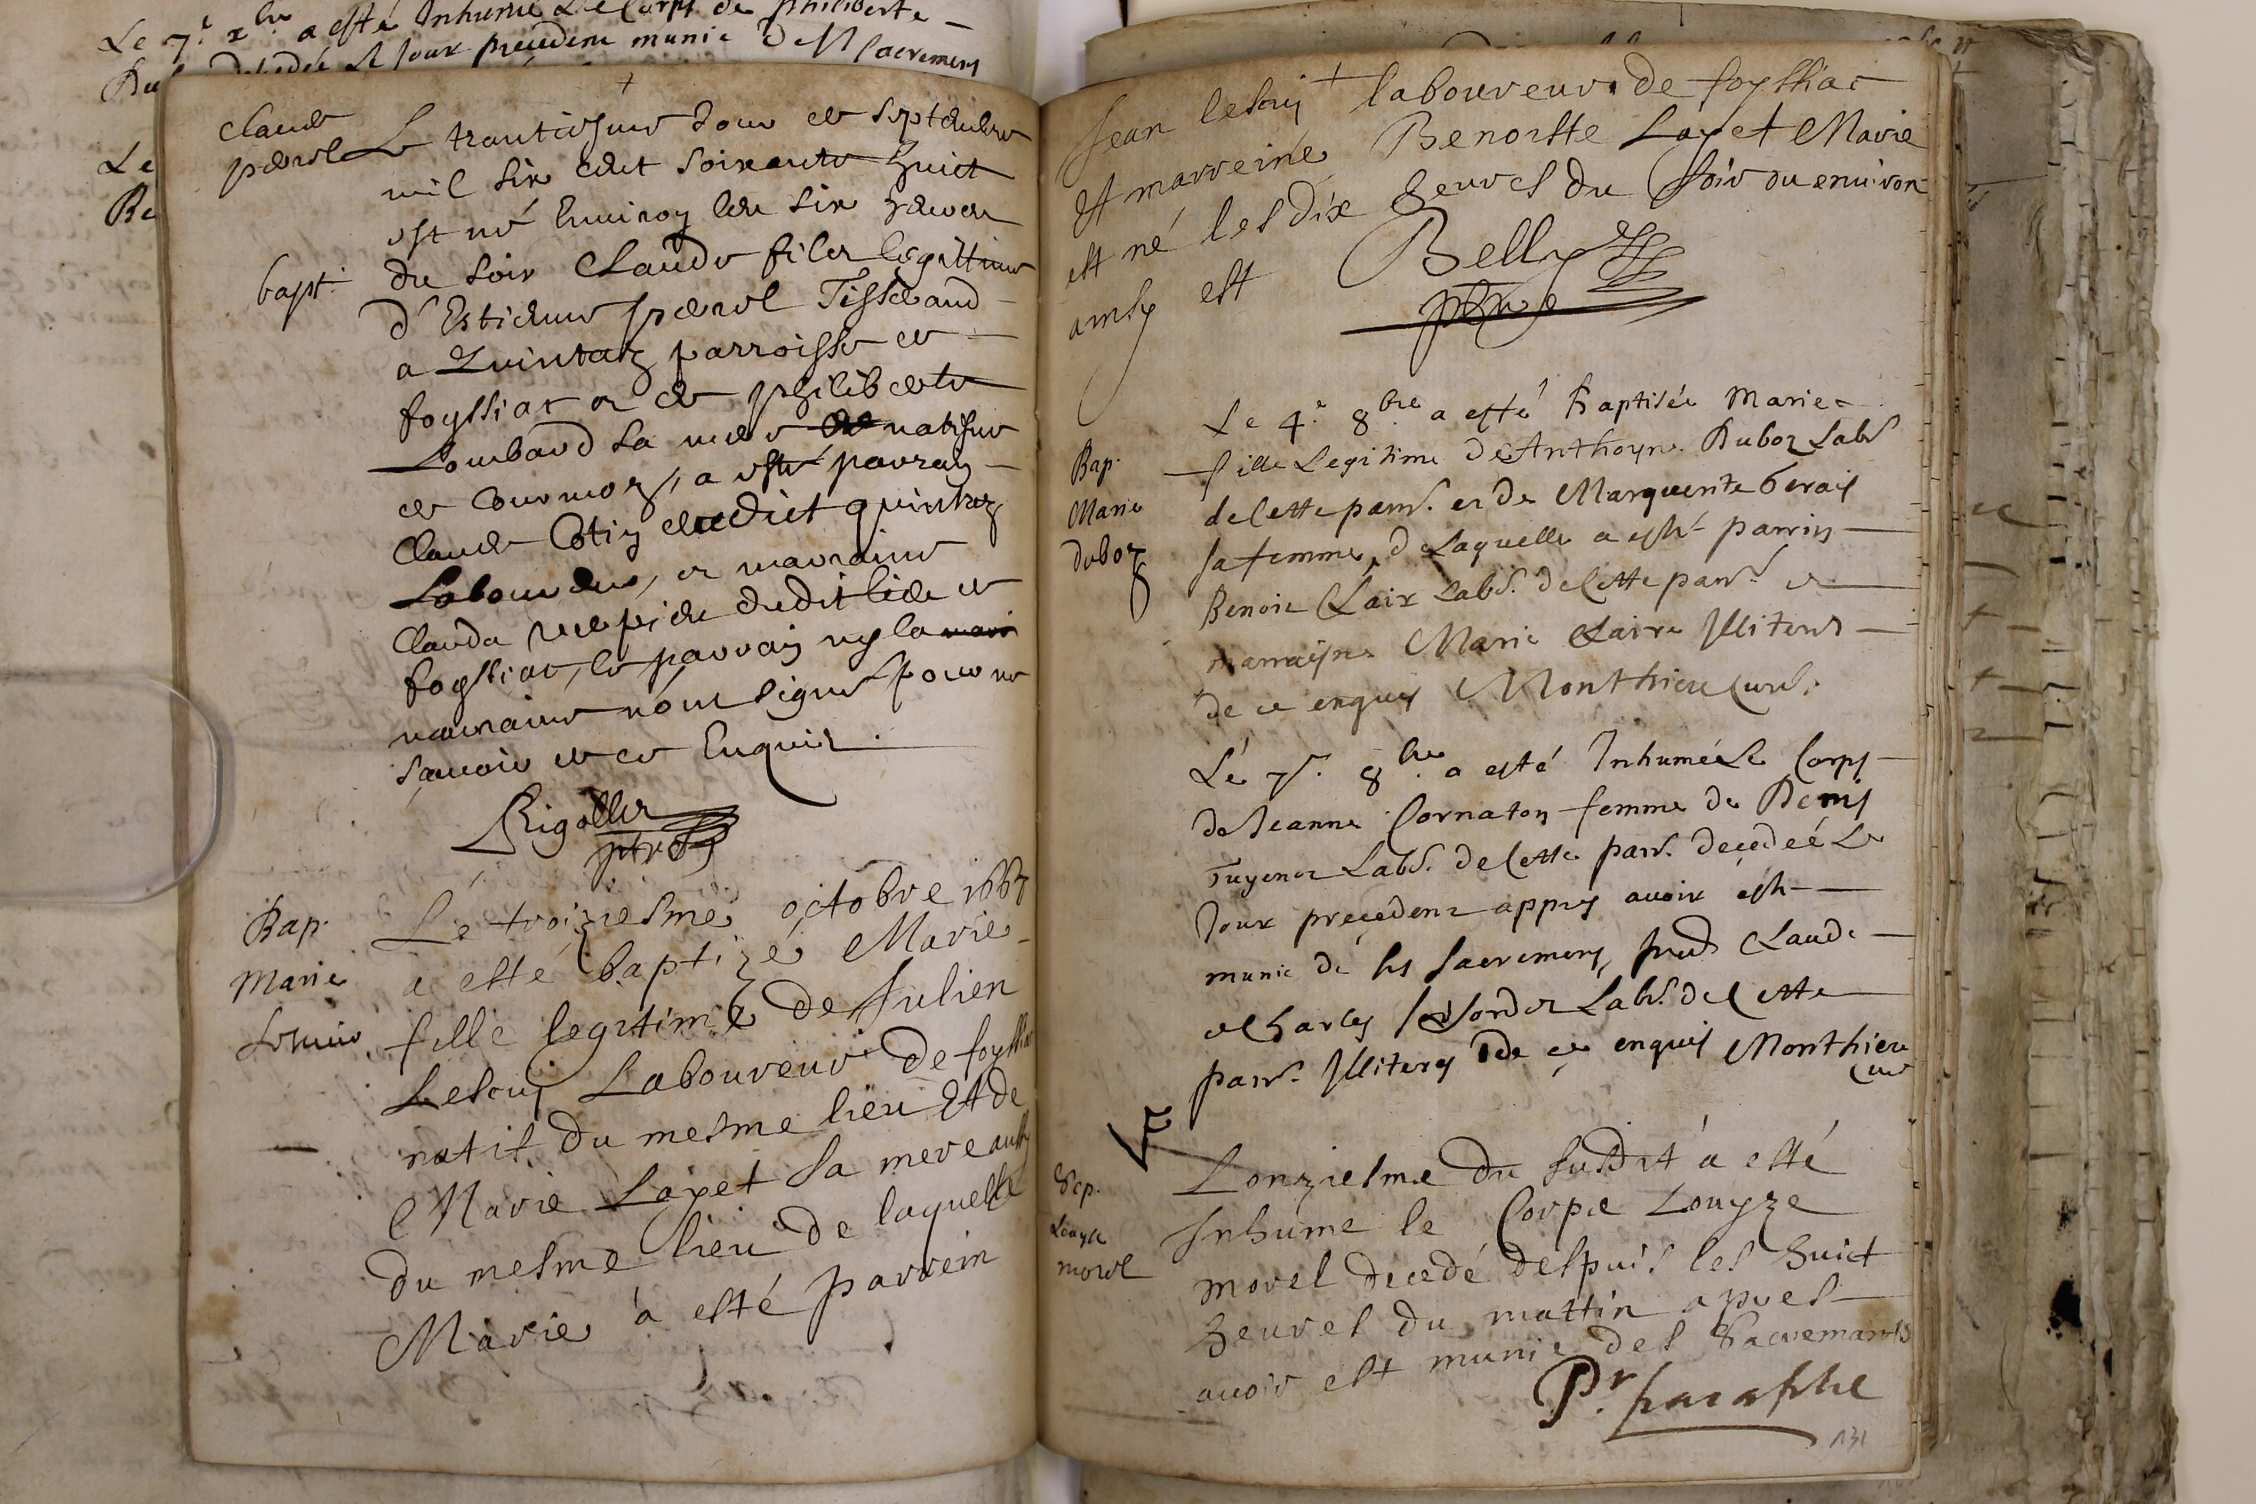 Le 7e xbre a esté Inhumé Le Corps de philiberte
decedée le Jour precedent munie des Sacremens
Le
claude
perol
Le trantiesme Jour de Septembre
mil six cent soixante huict
est né Environ les six heures
bapt.
du soir Claude filz legittime
d'Estienne perol Tisserand
a quintaz parroisse de
foyssiat et de philiberte
Lombard sa mere natifve
de Courmoz, a esté parrain
Claude Cotin dudict quintaz
Laboureur, et marraine
Clauda dudit lieu de
foyssiat, le parrain ny la
marraine n'ont signé pour ne
sçavoir de ce Enquis.
Rigollet
ptre
Bap.
Marie
Lescuier
Le troiziesme octobre 1668
a esté baptizé Marie
fille legitime de Julien
Lescuy Laboureur de foyssia
natif du mesme lieu Et de
Marie Layet sa mere aussy
du mesme lieu de laquelle
Marie a esté parrein
Jean lescuy laboureur de foyssiat
Et marreine Benoitte Layet Marie
est né les dix heures du soir ou environ
ainsy est
Belly
ptre
Bap.
Marie
duboz
Le 4e 8bre a esté Baptisée Marie
fille Legitime de Anthoyne Duboz Labr
de Cette parr. et de Marguerite
sa femme, de Laquelle a esté parrin
Benoit Clair Labr. de Cette parr. et
marrayne Marie Claire Illiterés
de ce enquis Monthieu Curé.
Le 7e. 8bre a esté Inhumé Le Corps
de Jeanne Cornaton femme de Denis
Labr. de Cette parr. decedeé Le
Jour precedent apprés avoir esté
munie de ses sacremens, pnts Claude
et Charles Labr. de Cette
parr. Illiterés de ce enquis Monthieu
Curé
Sep.
Louyse
morel
Lonziesme du susdit a esté
Inhume le Corps Louyze
morel decedé despuis les huict
heures du mattin apres
avoir est munie des Sacremants
Pr. paraphe
131